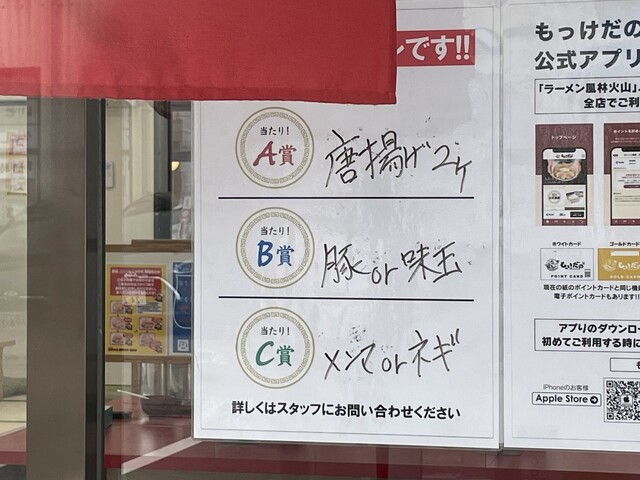 ンです!!
当たり!
A賞
唐揚げ2ヶ
当たり!
B賞
豚or味玉
当たり!
C賞
メンマorネギ
詳しくはスタッフにお問い合わせください
もっけだの
公式アプリ
「ラーメン風林火山」
全店でご利
トップページ
ホワイトカード
ゴールドカード
POINT CARD
現在の紙のポイントカードと同じ機
電子ポイントカードもあります!!
アプリのダウンロー
初めてご利用する時に
iPhoneのお客様
Apple Store